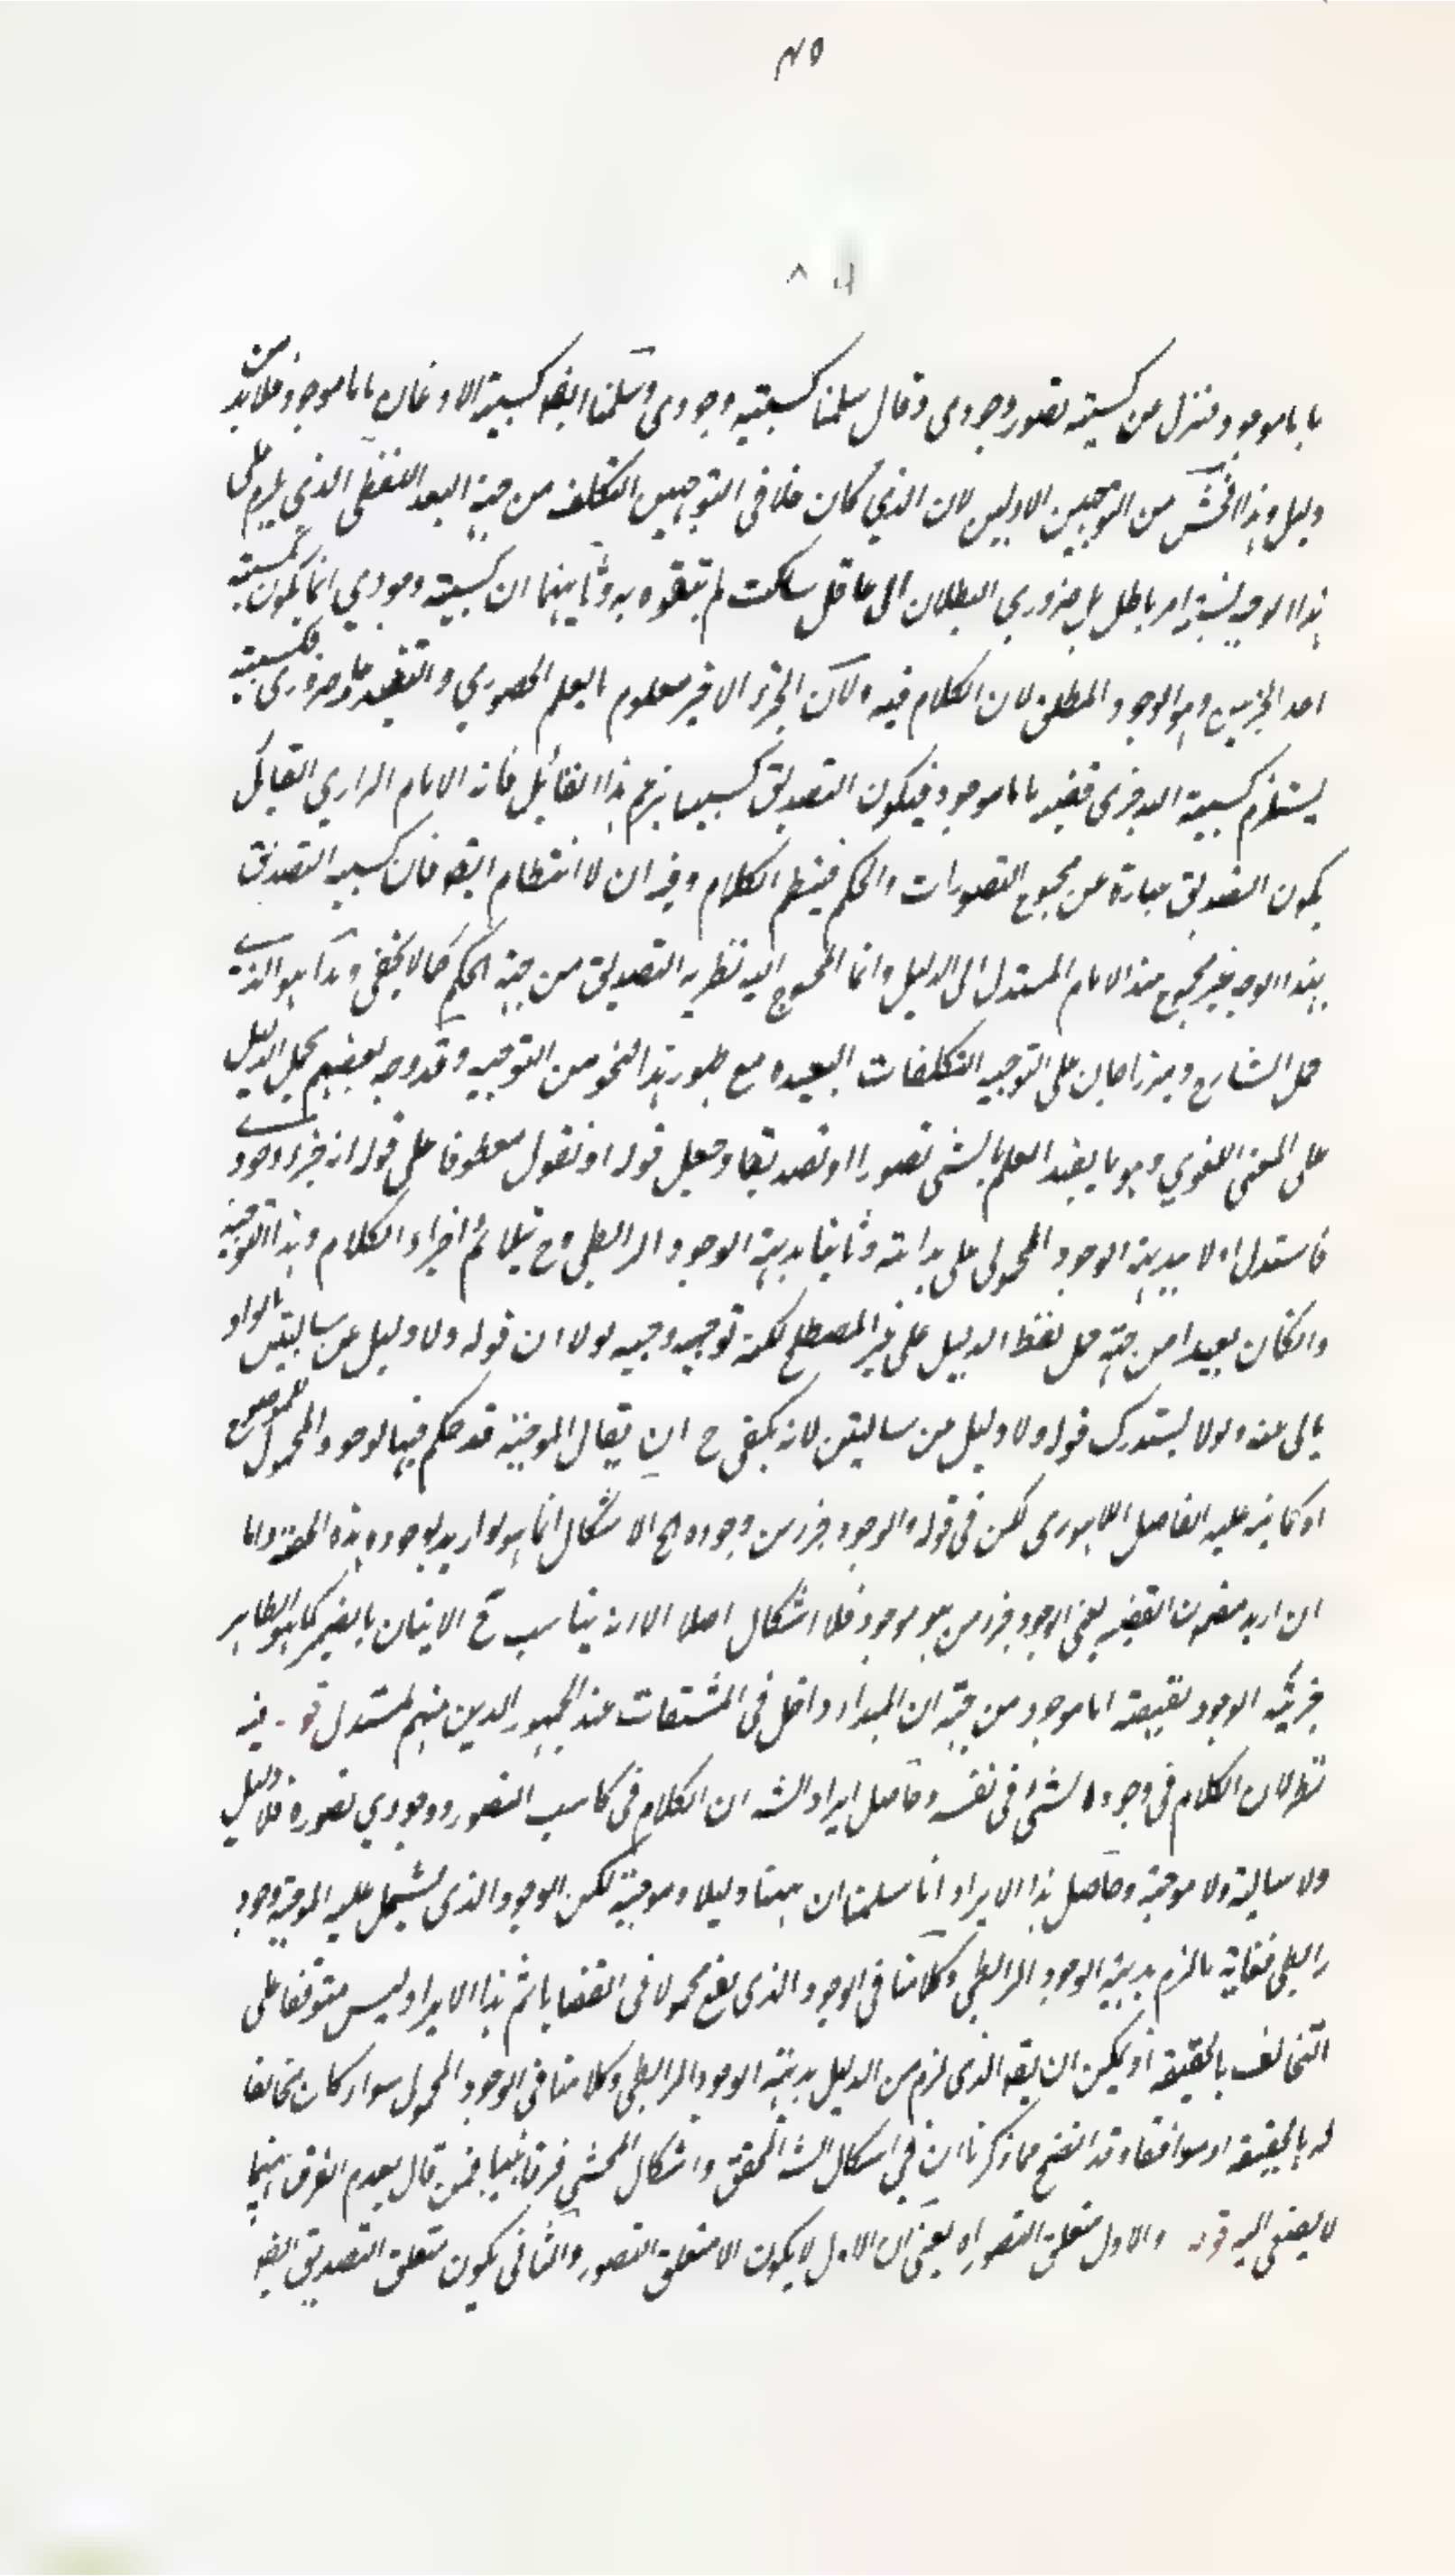 ٤٥
بانا موجود منزل من كسبية تصور وجودي وقال سلمنا كسبية وجودي وسلمنا ايضه كسبية الاذعان بانا موجود فلا بد من
دليل وهذا افحش من التوجيهين الاولين لان الذي كان خلا في التوجيهين التكلف من جهة البعد اللفظي الذي يلزم على
هذا الوجه نسبة امر باطل بل ضروري البطلان الى عاقل ساكت لم يتفوه به وثانيهما ان كسبية وجودي انما يكون كسبية
احد الجزئين وهو الوجود المطلق لان الكلام فيه ولان الجزء الاخير معلوم بالعلم الحضوري والتقييد ضروري فكسبيته
يستلزم كسبية البد قضية بانا موجود فيكون التصديق كسبيا بزعم هذا القائل فانه الامام الرازي القائل
يكون التصديق عبارة عن مجموع التصورات والحكم فينتظم الكلام وفيه ان لا انتظام ايضه فان كسبية التصديق
بهذا الوجه غير محوج عند الامام المستدل الى الدليل وانما المحوج اليه نظرية التصديق من جهة الحكم كما لا يخفى وهذا هو الذي
حمل الشارح وميرزاجان على التوجيه التكلفات البعيدة مع ظهور هذا النحو من التوجيه وقد وجه بعضهم بحمل الدليل
على المعنى اللغوي وهو ما يفيد العلم بالشئ تصورا او تصديقا وجعل قوله او نقول معطوفا على قوله انه جزء وجودي
فاستدل اولا ببديهة الوجود المحمولي على بداهته وثانيا بديهة الوجود الرابطي وح يتلائم اجزاء الكلام وهذا التوجيه
وان كان بعيدا من جهة حمل لفظ الدليل على غير المصطلح لكنه توجيه وجيه لولا ان قوله ولا دليل عن سالبتين بالواو
يابى عنه ولولا يستدرك قوله ولا دليل من سالبتين لانه يكفي ح ان يقال الموجبة قد حكم فيها بوجود المحمول للموضوع
او كما نبه عليه الفاضل اللاهوري لكن في قوله والوجود جزء من وجوده الاشكال انما هو لو اريد بوجوده هذه الحصة واما
ان اريد مضمون القضية يعني الوجود جزء من هو موجود فلا اشكال اصلا الا انه يناسب ح الاتيان بالضمير كما هو الظاهر
جزئية الوجود لقضية انا موجود من جهة ان المبدء داخل في المشتقات عند الجمهور الذين منهم المستدل قوله فيه
نظر لان الكلام في وجود الشئ في نفسه وحاصل ايراد الشه ان الكلام في كاسب التصور ووجودي تصور فلا دليل
ولا سالبة ولا موجبة وحاصل هذا الايراد انا سلمنا ان هنا دليلا وموجبة لكن الوجود الذي يشتمل عليه الموجبة وجود
رابطي فغاية ما لزم بديهة الوجود الرابطي وكلامنا في الوجود الذي يقع محمولا في القضايا ثم هذا الايراد ليس متوقفا على
التخالف بالحقيقة اذ يمكن ان يقه الذي لزم من الدليل بديهة الوجود الرابطي وكلامنا في الوجود المحمولي سواء كان مخالفا
له بالحقيقة او موافقا وقد اتضح مما ذكرنا ان في اشكال الشه المحقق واشكال المحشي فرقا بينا فمن قال بعدم الفرق بينهما
لا يصغى اليه قوله والاول متعلق التصور اه يعني ان الاول لا يكون الا متعلق التصور والثاني يكون متعلق التصديق ايضه